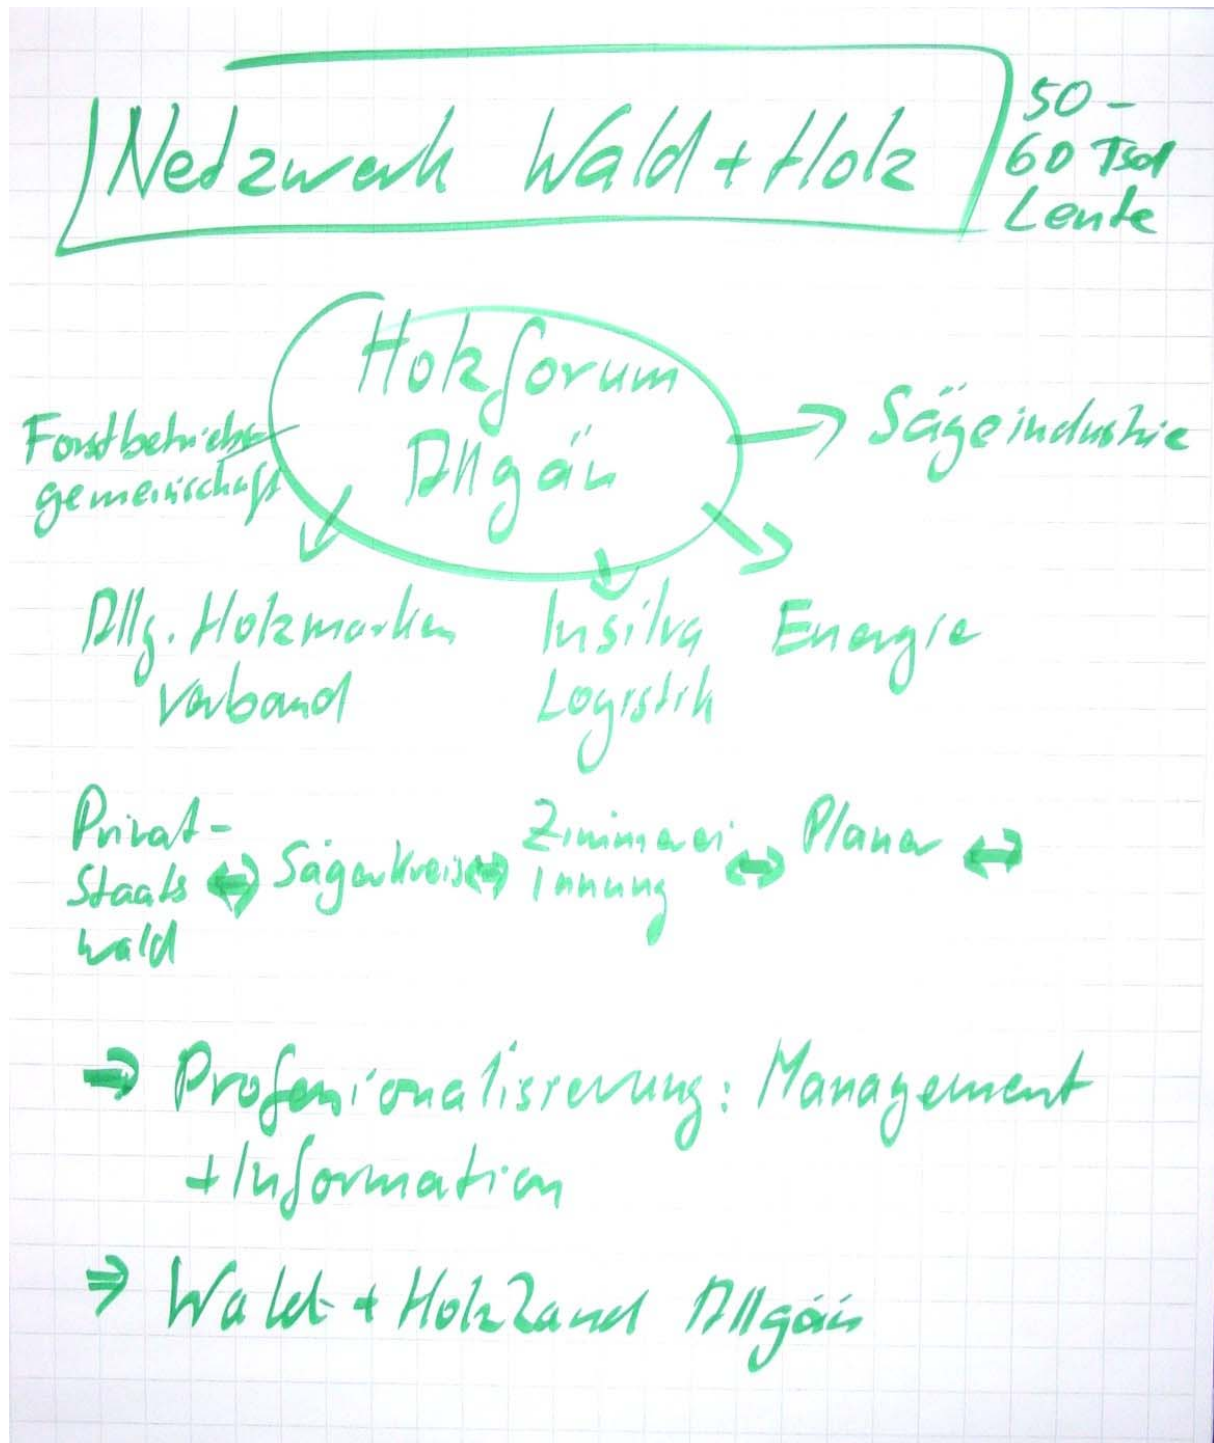 Netzwerk Wald + Holz
50 -
60 Tsd
Leute
Holzforum
Allgäu
Forstbetriebs-
gemeinschaft
Sägeindustrie
Allg. Holzmarken
verband
Insilva
Logistik
Energie
Privat-
Staats
wald
⇔ Sägerkreis ⇔
Zimmerei
Innung
⇔ Planer ⇔
⇒ Professionalisierung: Management
+ Information
⇒ Wald- + Holzland Allgäu